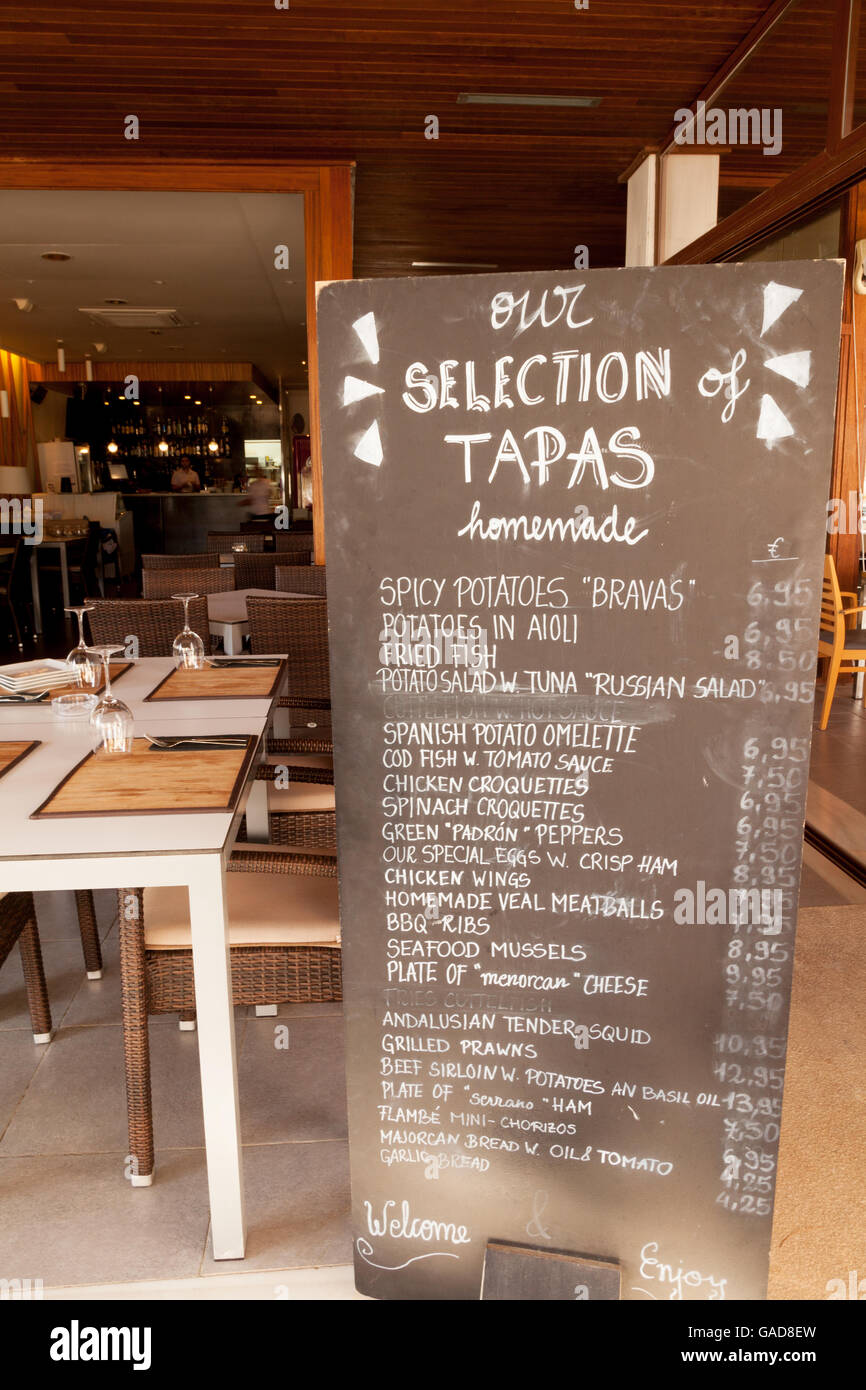 our
SELECTION of
TAPAS
homemade
€
SPICY POTATOES "BRAVAS" 6,95
POTATOES IN AIOLI 6,95
FRIED FISH 8,50
POTATO SALAD W. TUNA "RUSSIAN SALAD" 6,95
CUTTELFISH W. HOT SAUCE
SPANISH POTATO OMELETTE 6,95
COD FISH W. TOMATO SAUCE 7,50
CHICKEN CROQUETTES 6,95
SPINACH CROQUETTES 6,95
GREEN "PADRÓN" PEPPERS 7,50
OUR SPECIAL EGGS W. CRISP HAM 8,95
CHICKEN WINGS
HOMEMADE VEAL MEATBALLS
BBQ-RIBS 8,95
SEAFOOD MUSSELS 9,95
PLATE OF "menorcan" CHEESE 7,50
FRIES CUTTELFISH
ANDALUSIAN TENDER SQUID 10,95
GRILLED PRAWNS 12,95
BEEF SIRLOIN W. POTATOES AN BASIL OIL 13,95
PLATE OF "serrano" HAM 7,50
FLAMBÉ MINI-CHORIZOS 6,95
MAJORCAN BREAD W. OIL & TOMATO 4,25
GARLIC BREAD 4,25
Welcome & Enjoy
alamy
alamy
Image ID: GAD8EW
www.alamy.com